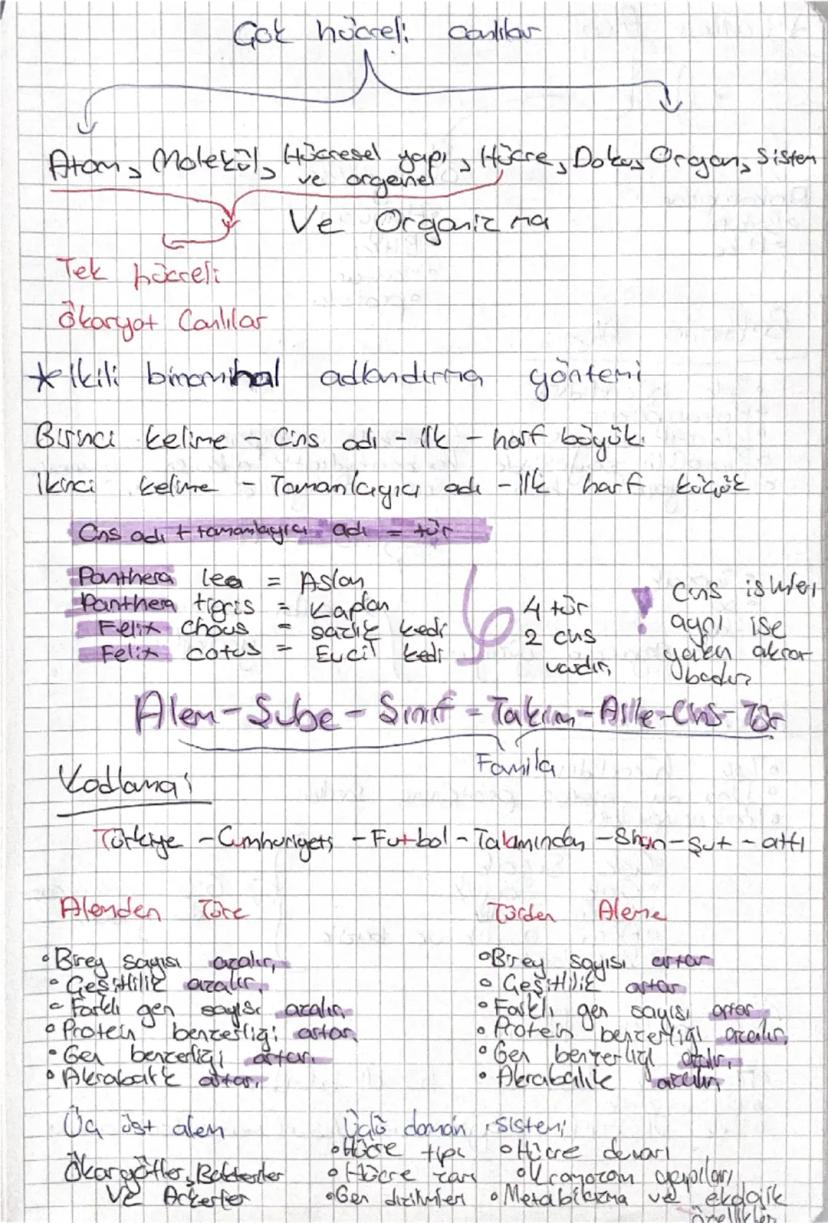 Çok hücreli canlılar
Atom, Molekül, Hücresel yapı ve organel, Hücre, Doku, Organ, Sistem
Ve Organizma
Tek hücreli
Ökaryot Canlılar
*İkili binominal adlandırma yöntemi
Birinci kelime - Cins adı - ilk - harf büyük
İkinci kelime - Tamamlayıcı adı - ilk harf küçük
Cins adı + tamamlayıcı adı = tür
Panthera leo = Aslan
Panthera tigris = Kaplan
Felix chaus = sazlık kedi
Felix catus = Evcil kedi
4 tür
2 cins
vardır,
! Cins isimleri
aynı ise
yakın akra
badır
Alem-Şube-Sınıf-Takım-Aile-Cins-Tür
Familia
Kodlama:
Türkiye - Cumhuriyeti - Futbol - Takımından - - Şut - attı
Alemden Türe
• Birey sayısı azalır,
• Çeşitlilik azalır,
• Farklı gen sayısı azalır,
• Protein benzerliği artar,
• Gen benzerliği artar,
• Akrabalık artar,
Türden Aleme
• Birey sayısı artar
• Çeşitlilik artar
• Farklı gen sayısı artar
• Protein benzerliği azalır,
• Gen benzerliği azalır,
• Akrabalık azalır
Üç üst alem
Ökaryotlar, Bakteriler
Ve Arkeler
Üçlü domain sistemi
• Hücre tipi • Hücre duvarı
• Hücre zarı • Kromozom yapıları
• Gen dizilimleri • Metabolizma ve ekolojik
özellikler